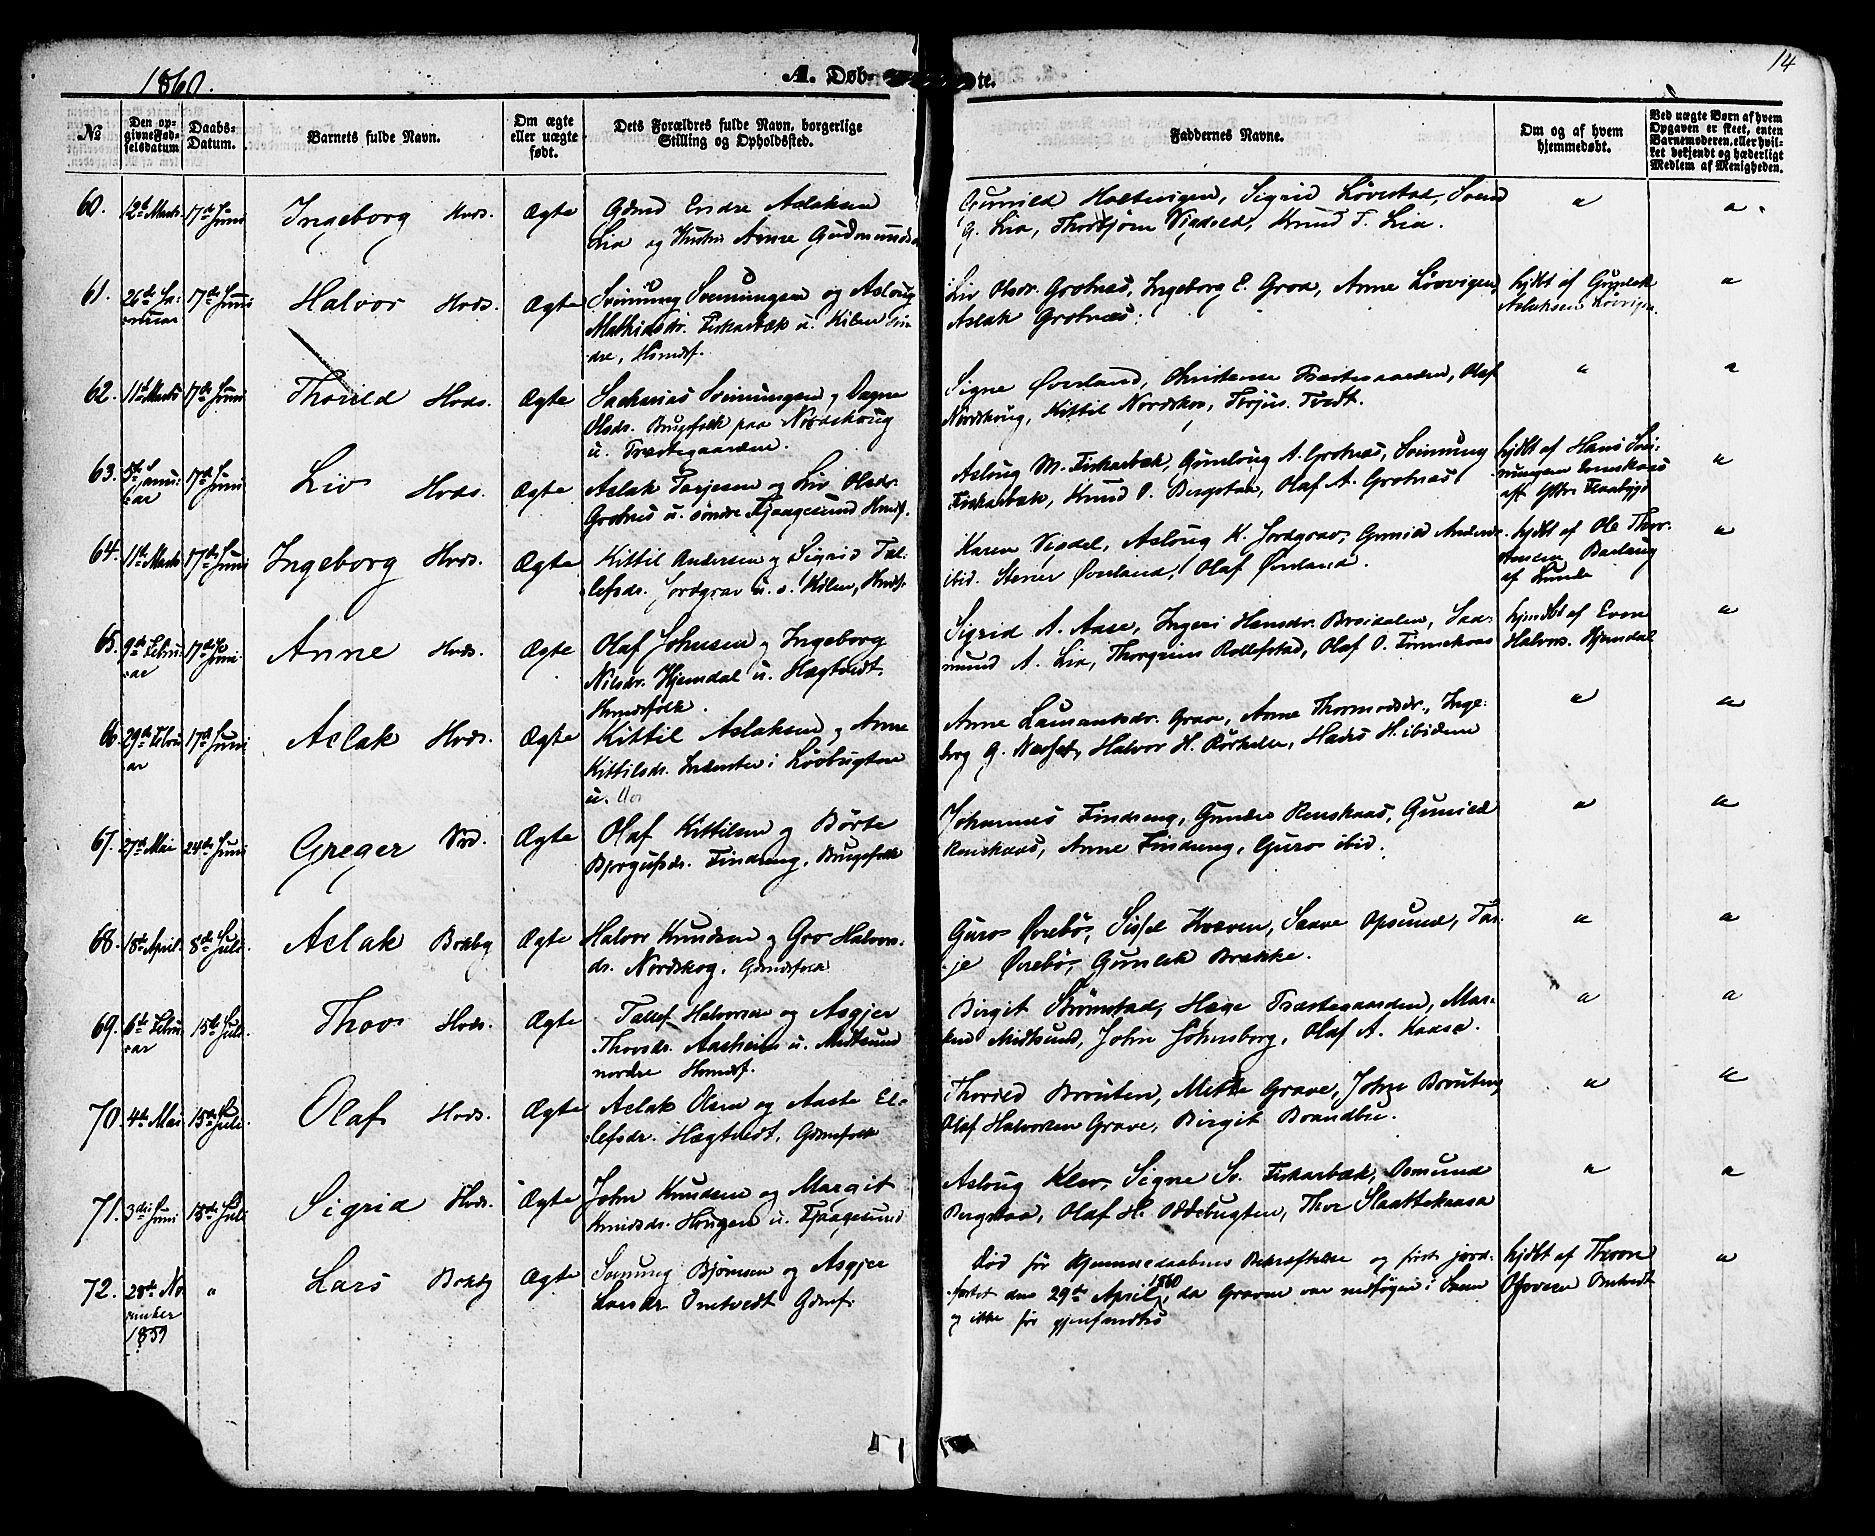 1860.
A. Døb- te.
14
№
Den opgivne Fødselsdatum
Daabs-Datum.
Barnets fulde Navn.
Om ægte eller uægte født.
Dets Forældres fulde Navn, borgerlige Stilling og Opholdssted.
Faddernes Navne.
Om og af hvem hjemmedøbt.
Ved uægte Børn af hvem Opgaven er skeet, enten Barnemoderen, eller hvilket bekjendt og hæderligt Medlem af Menigheden.
60. 12te Marts 17de Juni Ingeborg Hvds. Ægte Gdmd Endre Aslaksen
Lia og Hustru Anne Gudmundsd
Gunild Holtevigen, Sigrid Løvestad, Svend
G. Lia, Thorbjørn Vigdeld, Knud T. Lia.
61. 26de Januar 17de Juni Halvor Hvds. Ægte Svinung Svenungsen og Aslaug
Mathiasdr. Fiskarbæk u. Kilen søn
dre, Hsmdsf.
Liv Olsdr. Grotnæs, Ingeborg E. Groa, Anne Løvvigen,
Aslak Grotnæs.
hjdbt af Gunlek
Aslaksen Løvvigen
62. 11te Marts 17de Juni Thorild Hvds. Ægte Sacharias Svinungsen og Dagne
Olsdr. Brugsfolk paa Nordskoug
u. Præstegaarden.
Signe Øverland, Christense Præstegaarden, Olaf
Nordskoug, Kittil Nordskog, Terjus Tvedt.
63. 5te Januar 17de Juni Liv Hvds. Ægte Aslak Tarjesen og Liv Olsdr.
Grotnæs u. søndre Fjaagesund Hmdsf.
Aslaug M. Fiskarbæk, Gunloug A. Grotnæs, Svinung
Fiskarbæk, Knud O. Bergstaa, Olaf A. Grotnæs
hjdbt af Hans Svinungsen
64. 11te Marts 17de Juni Ingeborg Hvds. Ægte Kittil Andersen og Sigrid Tal-
lefsdr. Jordgrav u. s. Kilen, Hmdsf.
Karen Vigdel, Aslaug K. Jordgrav, Gunild Anders
ibid. Stener Øverland, Olaf Øverland.
hjdbt af Ole Thor-
stensen Baslaug
af Lunde
65. 9de Februar 17de Juni Anne Hvds. Ægte Olaf Johnsen og Ingeborg
Nilsdr. Hjemdal u. Hægtvedt,
Husmdsfolk.
Sigrid A. Aase, Ingeri Hansdr. Breidalen, Saa-
mund A. Lia, Thorgrim Rollefstad, Olaf O.
hjemdbt af Even
Halvors. Hjemdal
66. 29de Februar 17de Juni Aslak Hvds. Ægte Kittil Aslaksen og Anne
Kittilsdr. Inderster i Løvbugten
u.
Anne Lauvantsdr. Graa, Anne Thormodsdr., Inge-
borg G. Næset, Halvor H. Rørhelle, Hans H. ibidem
67. 27de Mai 24de Juni Greger Ægte Olaf Kittilsen og Børte
Bjørgufsdr. Findreng, Brugsfolk
Johannes Findreng, Gunder Renskaas, Gunild
Renskaas, Anne Findreng, Guro ibid.
68. 18de April 8de Juli Aslak Brkbg Ægte Halvor Knudsen og Gro Halvors-
dr. Nordskog, Gdmdsfolk
Guro Øvrebø, Sissel Kvæven, Saave Opsund, Tar-
je Øvrebø, Gunlek Brække.
69. 6te Februar 15de Juli Thov Hvds. Ægte Tallef Halvorsen og Asgjer
Thovsdr. Aasheim u. Midtsund
nordre Hsmdsf.
Birgit Strømstad, Hæge Præstegaarden, Mar-
ken Midtsund, John Johnsborg, Olaf A. Kaasa.
70. 4de Mai 15de Juli Olaf Hvds. Ægte Aslak Olsen og Aaste El-
lefsdr. Hægtvedt, Gdmdsfolk
Thorild Brouten, Mette Grave, Johze Brouten,
Olaf Halvorsen Grave, Birgit Brandlie.
71. 3die Juni 15de Juli Sigrid Hvds. Ægte John Knudsen og Margit
Knudsdr. Hougen u. Fjaagesund
Aslaug Kleiv, Signe S. Fiskarbæk, Osmund
Bergstaa, Olaf H. Oddebugten, Thor Slaattekaasa
72. 28de November 1859 " Lars Brkbg Ægte Svinung Bjørnsen og Asgjer
Larsdr Omtvedt Gdmf.
Død før Hjemmedaabens Bekræftelse og først jord-
fæstet den 29de April 1860, da Graven var nedføgen i Sneen
og ikke før gjenfandtes
hjdbt af Thorne
Omtvedt